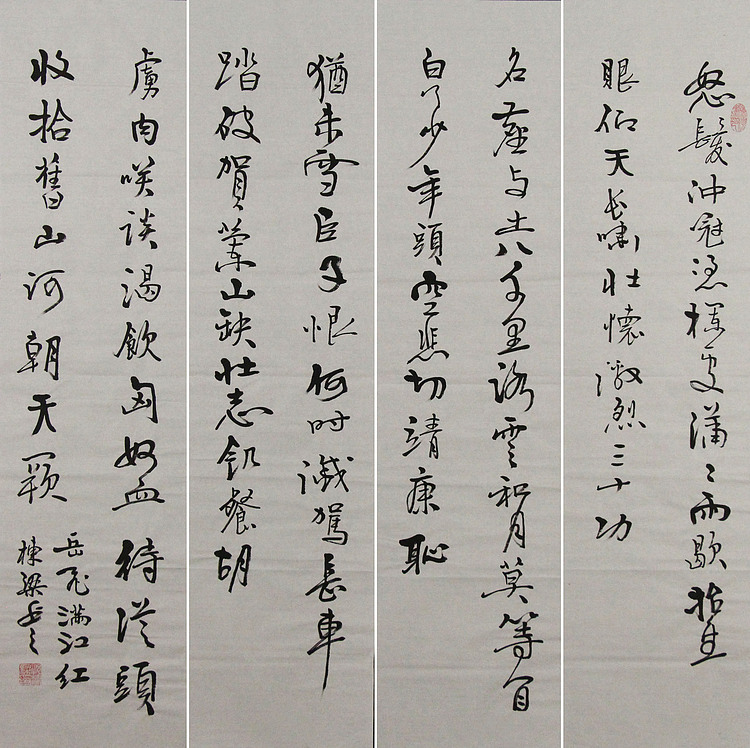 怒髮冲冠憑欄處瀟〻雨歇抬望
眼仰天長嘯壯懷激烈三十功
名塵与土八千里路雲和月莫等閒
白了少年頭空悲切靖康恥
猶未雪臣子恨何时滅駕長車
踏破賀蘭山缺壯志飢餐胡
虜肉咲談渴飲匈奴血待從頭
收拾舊山河朝天闕
岳飞滿江红
棟梁书